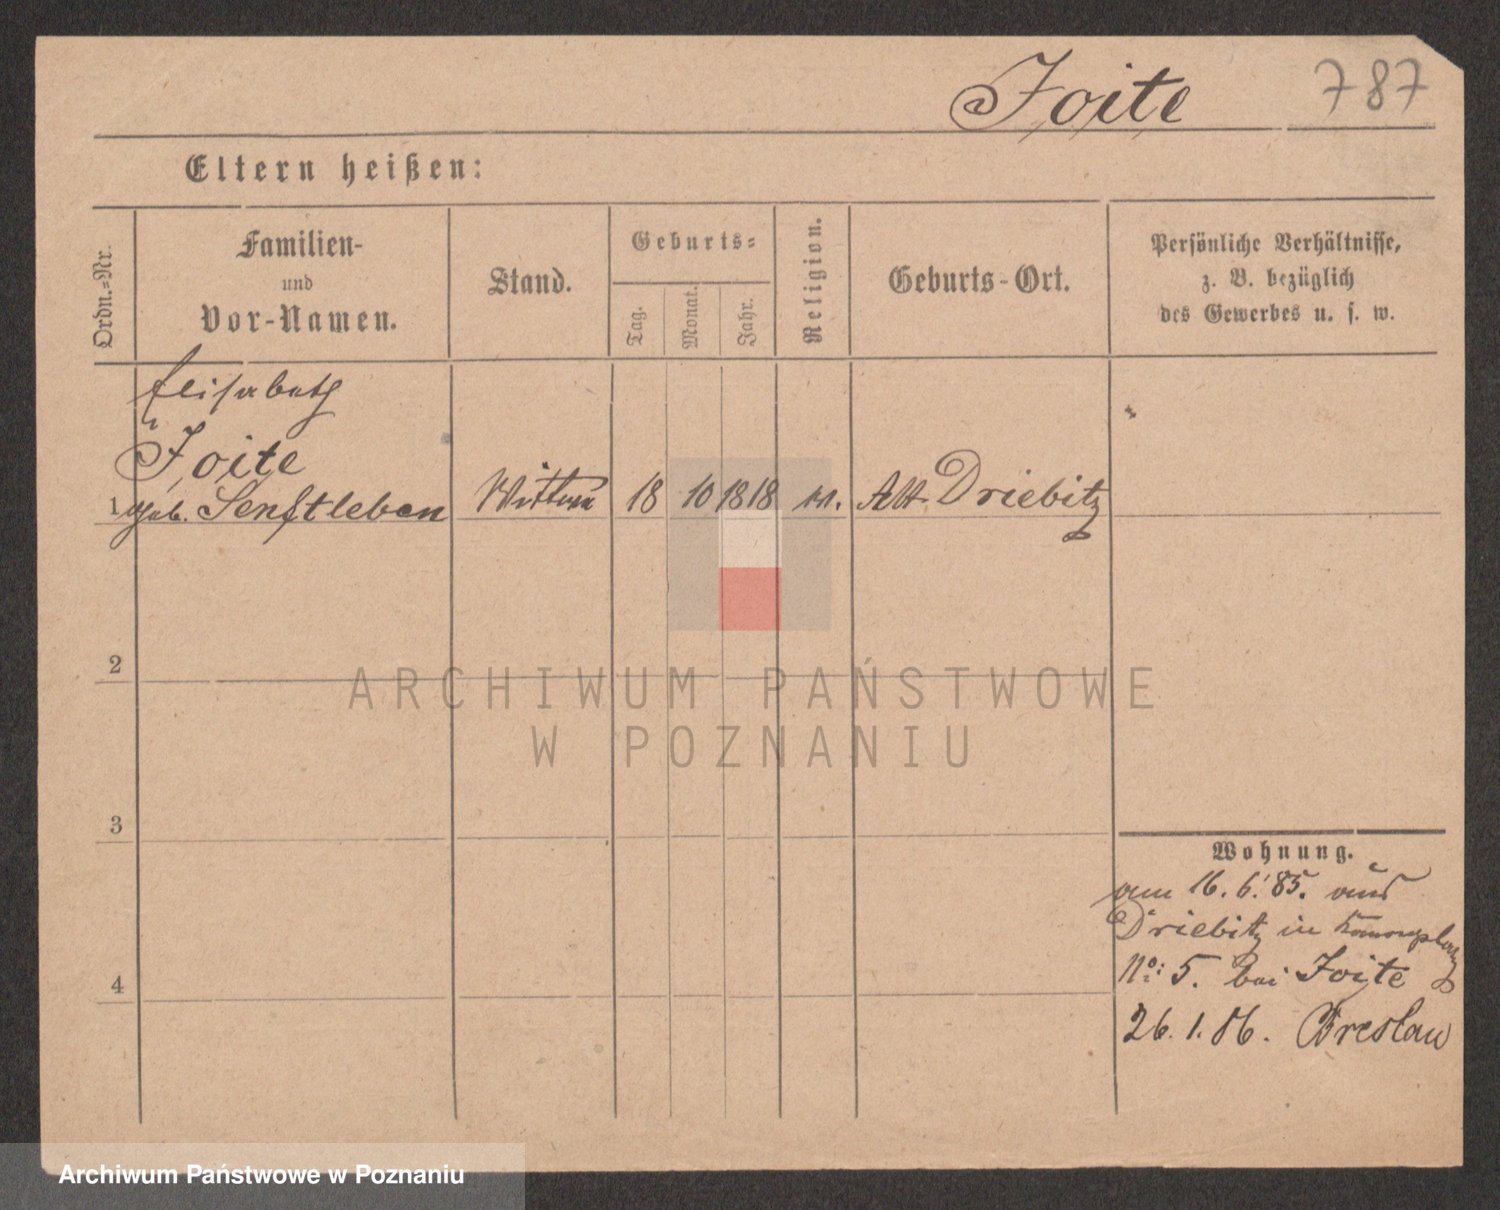 Joite 787
Eltern heißen:
Ordn.=Nr.
Familien-
und
Vor-Namen.
Stand.
Geburts=
Tag.
Monat.
Jahr.
Religion.
Geburts-Ort.
Persönliche Verhältnisse,
z. B. bezüglich
des Gewerbes u. s. w.
Elisabeth
Joite
1 geb. Senftleben Wittwe 18 10 1818 Alt Driebitz
2
3
4
Wohnung.
am 16. 6. 85. aus
Driebitz in
No: 5. bei Joite
26. 1. 86. Breslau
ARCHIWUM PAŃSTWOWE
W POZNANIU
Archiwum Państwowe w Poznaniu